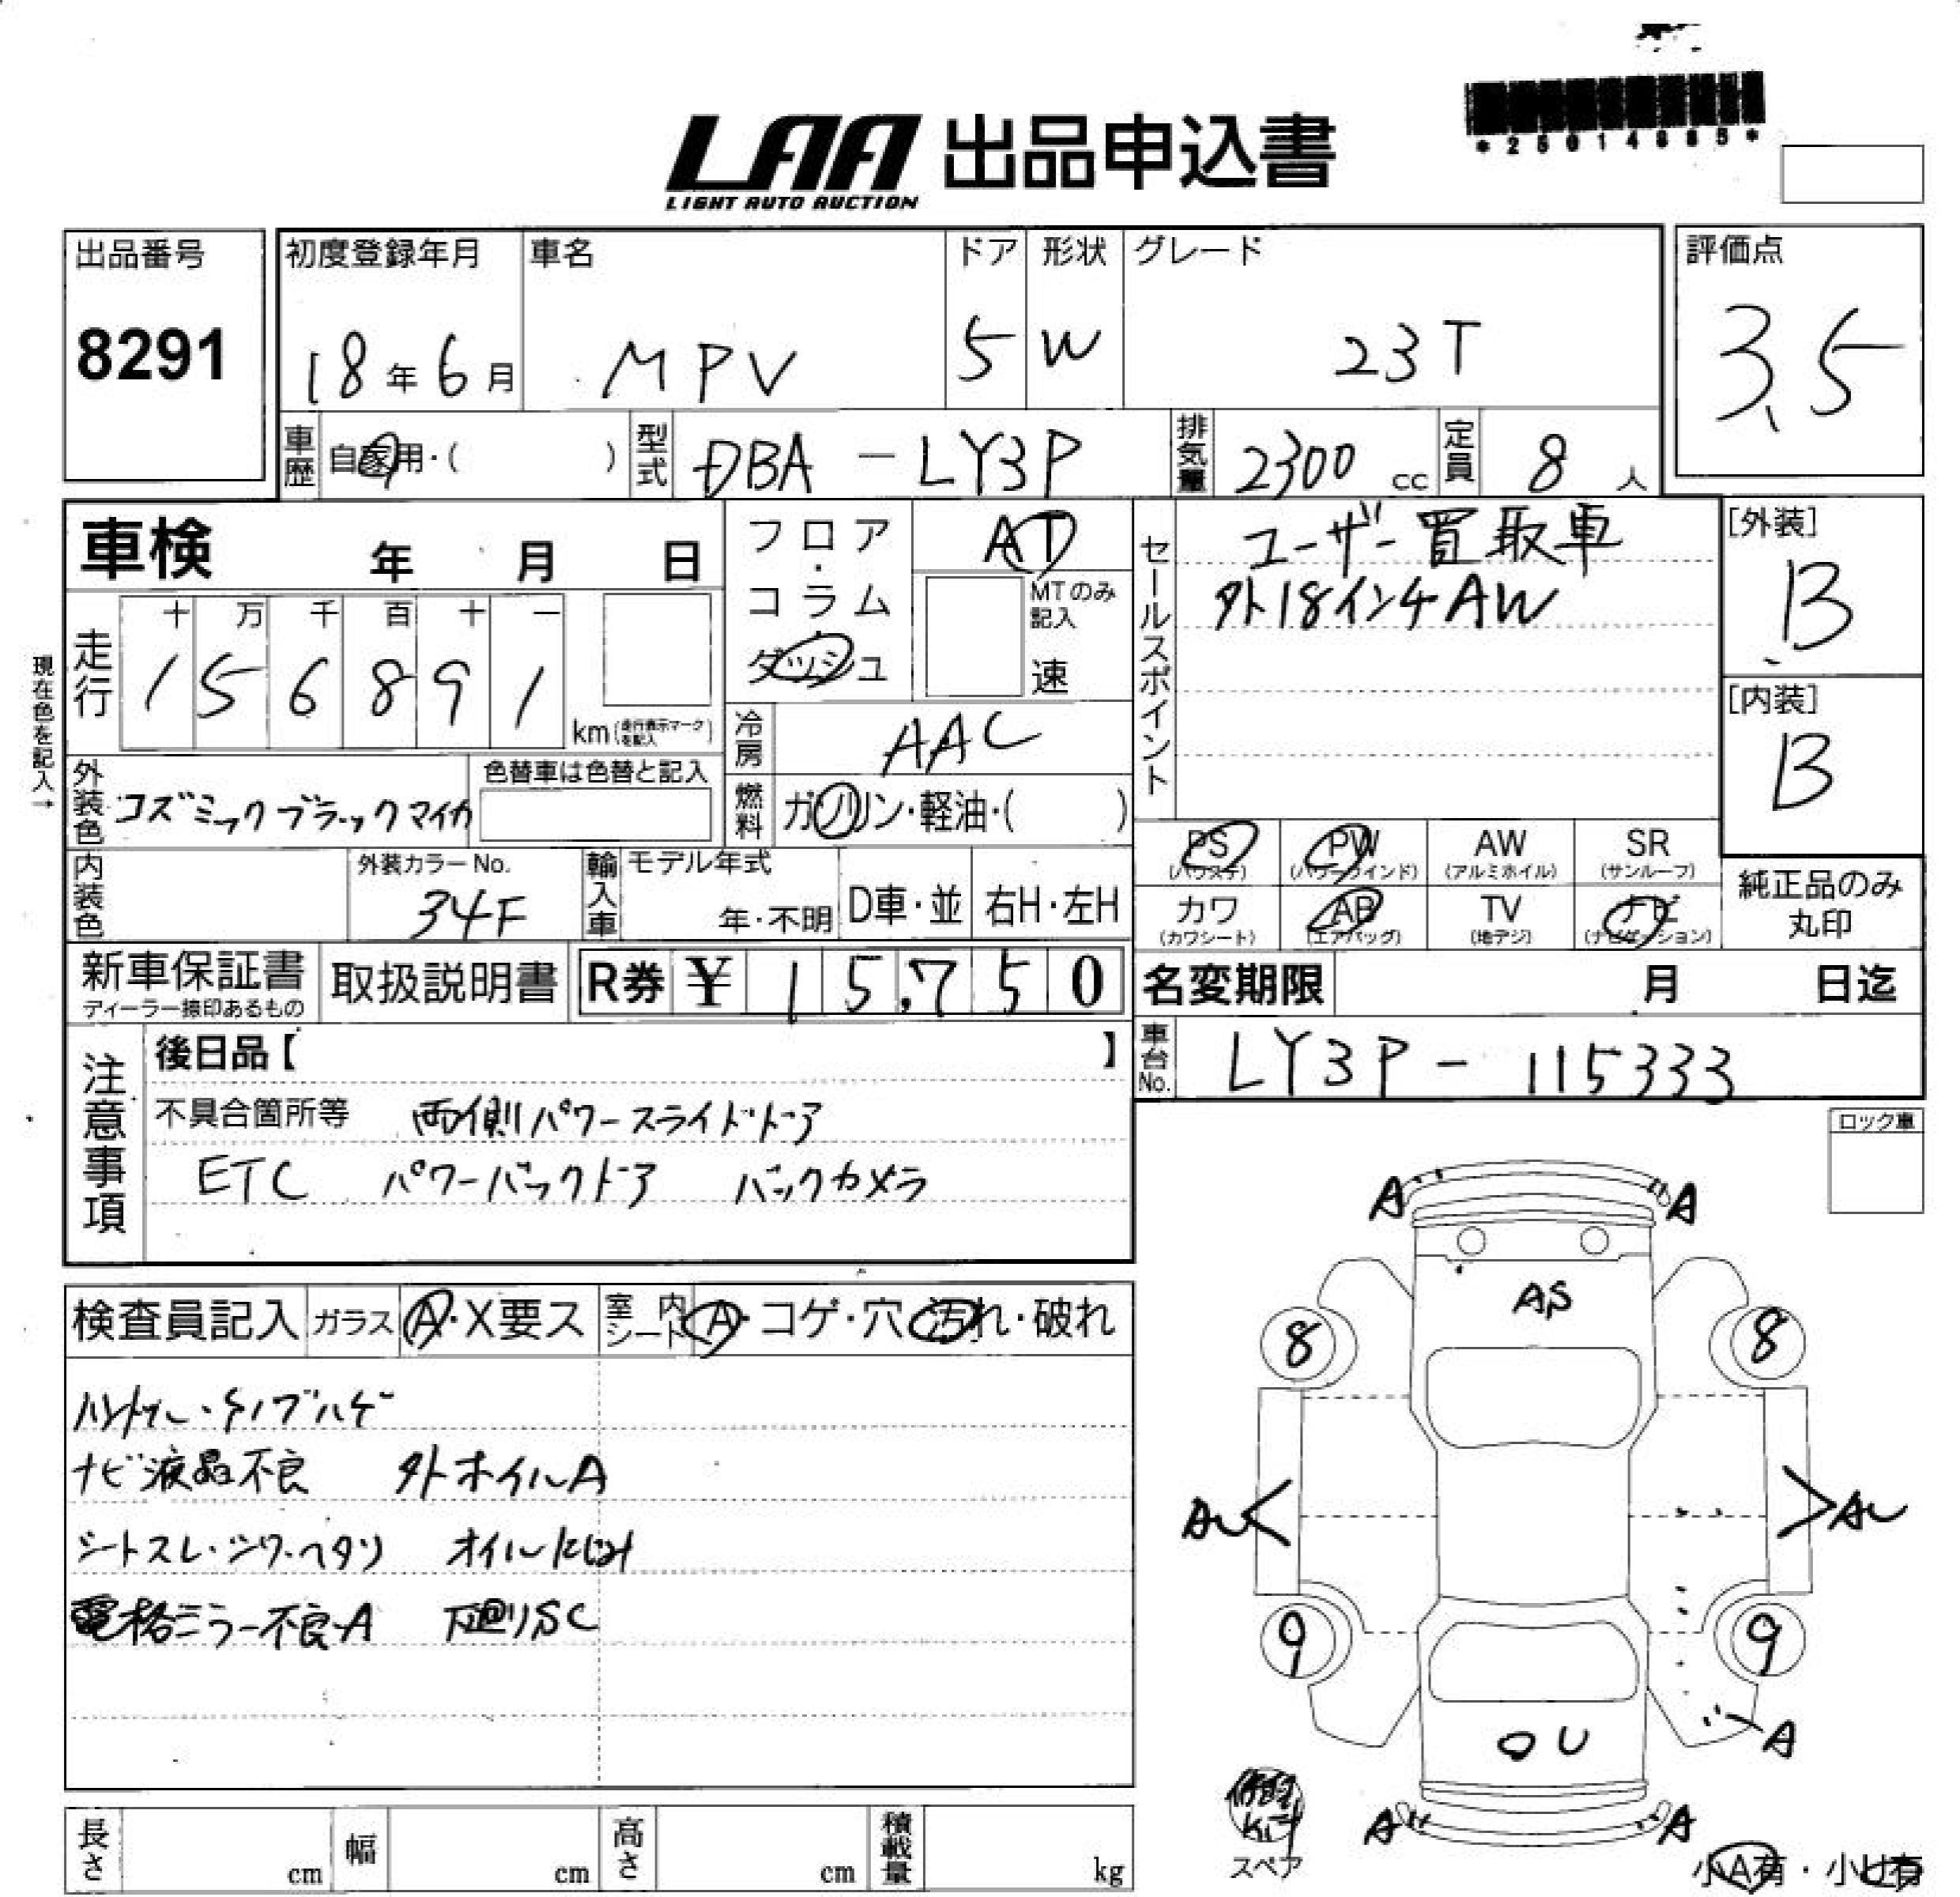 *25014885*
LAA 出品申込書
LIGHT AUTO AUCTION
出品番号
8291
初度登録年月
18年6月
車名
MPV
ドア
5
形状
W
グレード
23T
評価点
3.5
車歴 自家用・( )
型式 DBA-LY3P
排気量 2300 cc
定員 8 人
車検 年 月 日
フロア・コラム・ダッシュ
AT
MTのみ記入
速
走行
十 万 千 百 十 一
1 5 6 8 9 1
km (走行表示マークを記入)
現在色を記入→
冷房 AAC
外装色 コズミックブラックマイカ
色替車は色替と記入
燃料 ガソリン・軽油・( )
セールスポイント
ユーザー買取車
外18インチAW
[外装]
B
[内装]
B
PS (パワステ)
PW (パワーウインド)
AW (アルミホイル)
SR (サンルーフ)
カワ (カワシート)
AB (エアバッグ)
TV (地デジ)
ナビ (ナビゲーション)
純正品のみ
丸印
内装色
外装カラーNo.
34F
輸入車
モデル年式
年・不明
D車・並
右H・左H
新車保証書
ディーラー捺印あるもの
取扱説明書
R券 ¥ 15,750
名変期限 月 日迄
車台No. LY3P-115333
注意事項
後日品【 】
不具合箇所等 両側パワースライドドア
ETC パワーバックドア バックカメラ
ロック車
検査員記入
ガラス A・X要ス
室内シート A・コゲ・穴・汚れ・破れ
ナビ液晶不良 外ホイルA
シートスレ・シワ・ヘタリ オイルにじみ
電格ミラー不良・A 下廻りSC
A A
AS
8 8
AU AU
9 9
A
U
A A
修理
Kit
スペア
小A有・小U有
長さ cm
幅 cm
高さ cm
積載量 kg